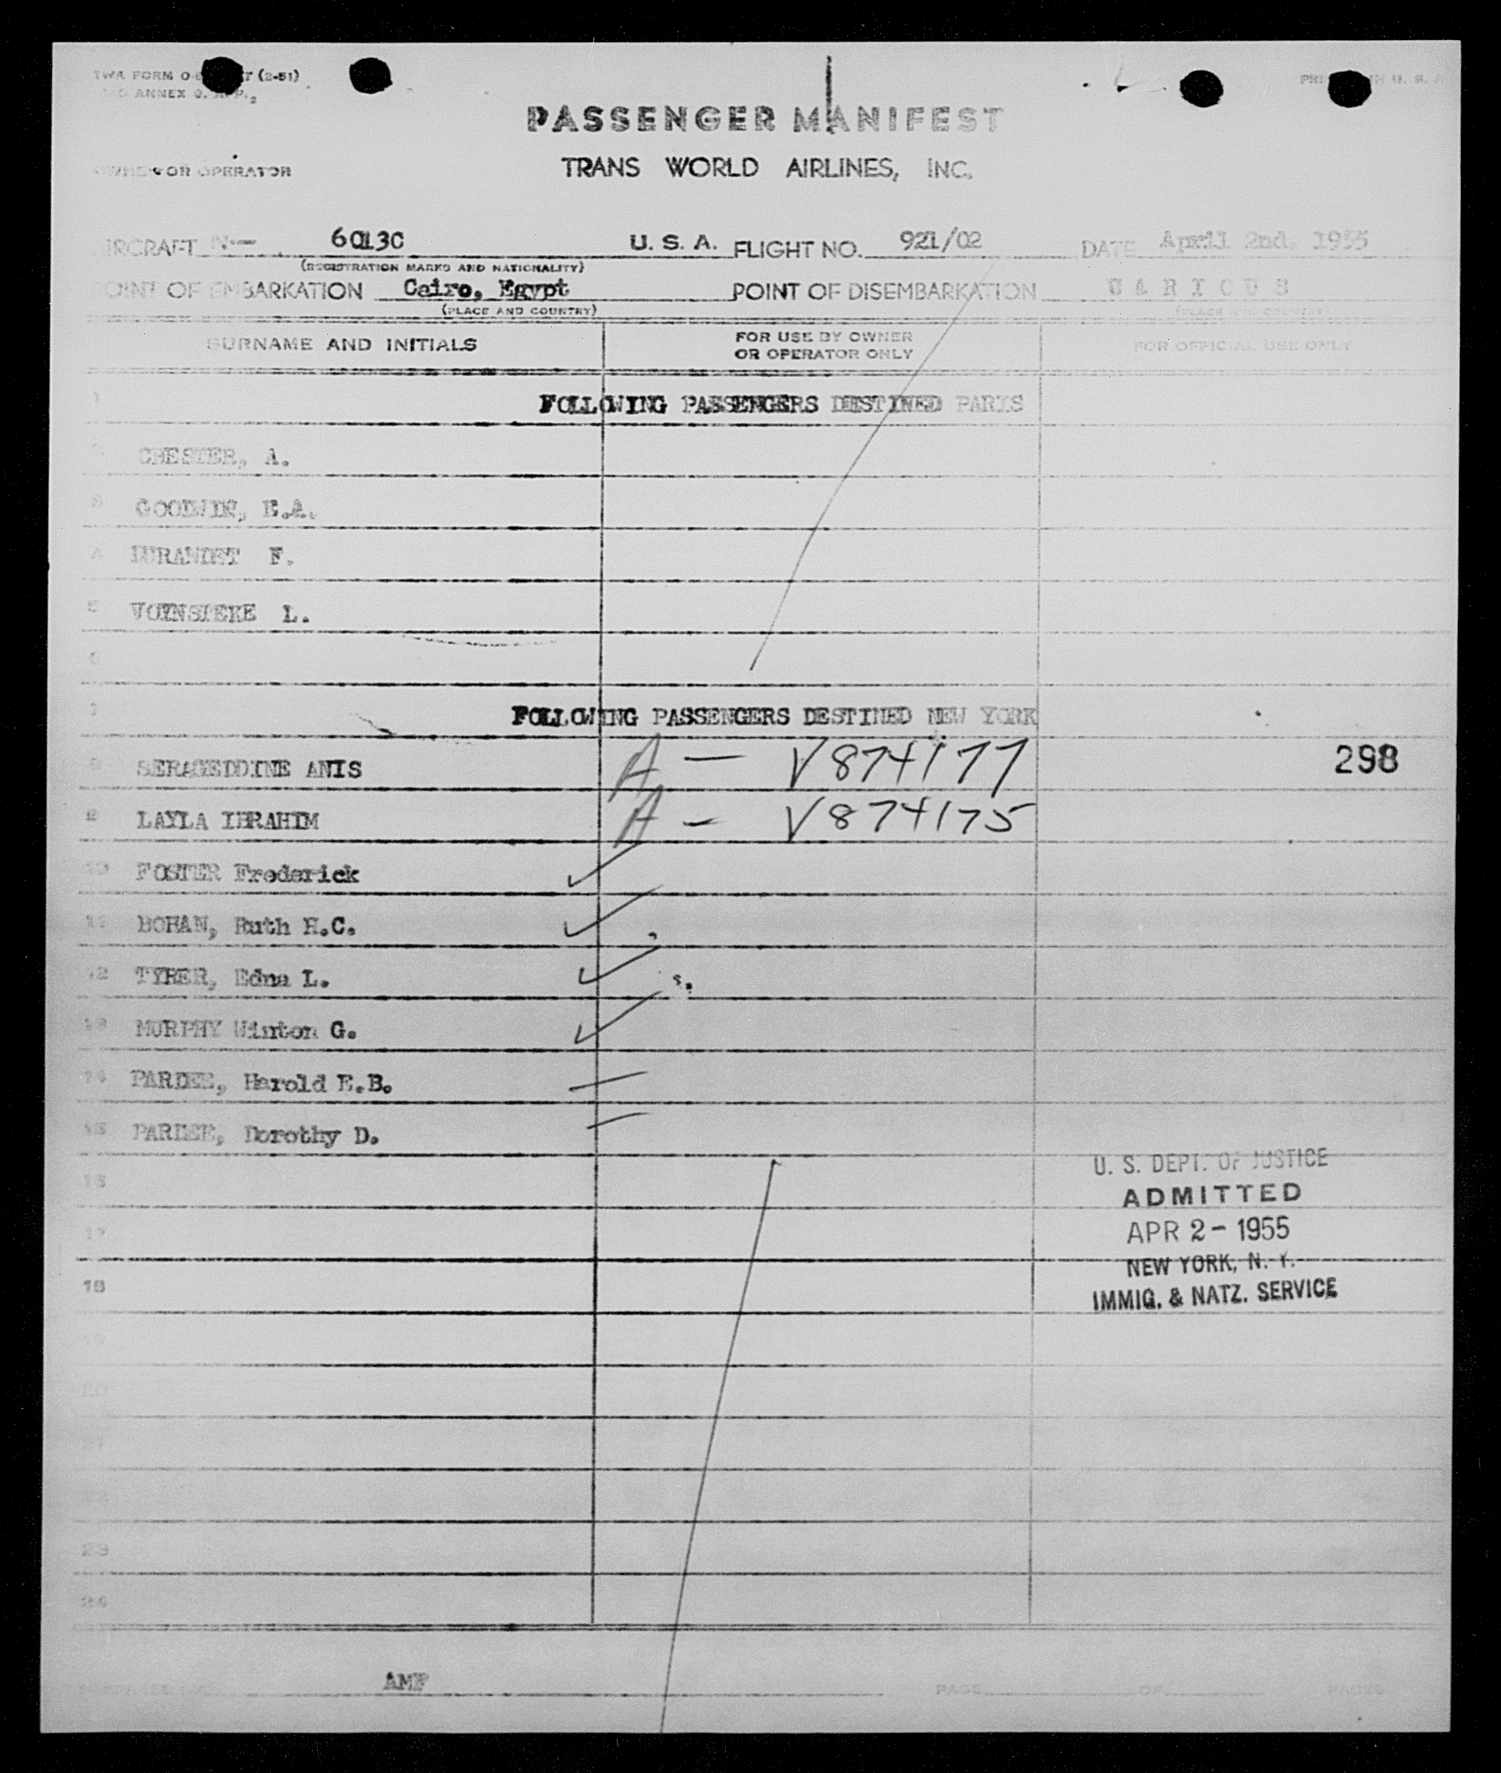 TWA FORM (2-51)
ANNEX 9, APP. 2
PASSENGER MANIFEST
TRANS WORLD AIRLINES, INC.
OWNER OR OPERATOR
AIRCRAFT N— 6013C U. S. A. FLIGHT NO. 921/02 DATE April 2nd. 1955
(REGISTRATION MARKS AND NATIONALITY)
POINT OF EMBARKATION Cairo, Egypt POINT OF DISEMBARKATION VARIOUS
(PLACE AND COUNTRY) (PLACE COUNTRY)
SURNAME AND INITIALS FOR USE BY OWNER OR OPERATOR ONLY FOR OFFICIAL USE ONLY
1 FOLLOWING PASSENGERS DESTINED PARIS
CHESTER, A.
3 GOODWIN, E.A.
4 F.
5 L.
6
7 FOLLOWING PASSENGERS DESTINED NEW YORK
8 SERAGEDDINE ANIS A — V874177 298
9 LAYLA IBRAHIM A — V874175
10 FOSTER Frederick
11 BOHAN, Ruth H.C.
12 TYRER, Edna L.
13 MURPHY Winton G.
14 PARDEE, Harold E.B.
15 PARDEE, Dorothy D.
U. S. DEPT. OF JUSTICE
16
ADMITTED
17
APR 2 - 1955
NEW YORK, N. Y.
18
IMMIG. & NATZ. SERVICE
19
20
21
22
23
24
AMF
PAGE OF PAGES